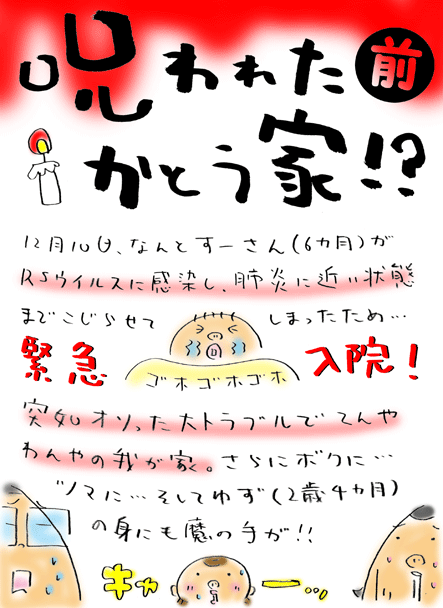 呪われた 前
かとう家!?
12月10日、なんとすーさん(6カ月)が
RSウイルスに感染し、肺炎に近い状態
までこじらせて しまったため…
緊急 入院!
ゴホゴホゴホ
突如オソった大トラブルでてんや
わんやの我が家。さらにボクに…
ツマに…そしてゆず(2歳4カ月)
の身にも魔の手が!!
キャ ー…